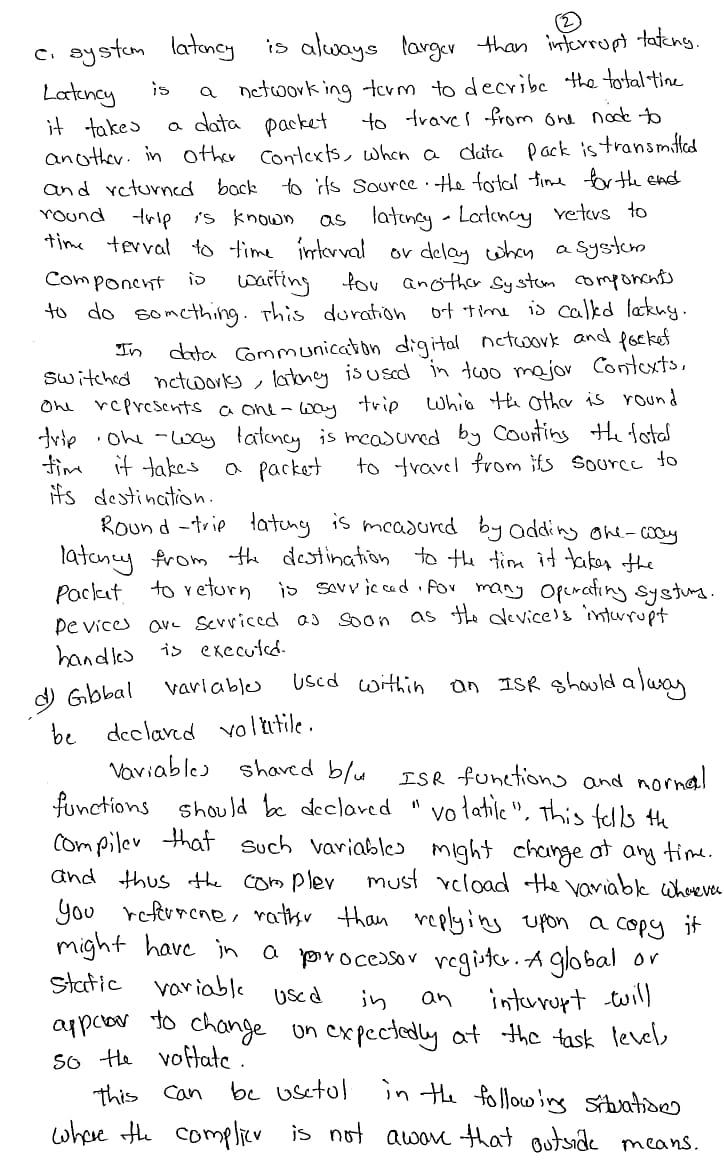 ②
c. system latency is always larger than interrupt latency.
Latency is a networking term to decribe the total time
it takes a data packet to travel from one node to
another. in other contexts, when a data pack is transmitted
and returned back to its source. the total time for the end
round trip is known as latency - Latency reters to
time terval to time interval or delay when a system
component is waiting for another system components
to do something. This duration of time is called latency.
In data communication digital network and packet
switched networks, latency is used in two major contexts,
one represents a one-way trip while the other is round
trip. one-way latency is measured by counting the total
time it takes a packet to travel from its source to
its destination.
Round-trip latency is measured by adding one-way
latency from the destination to the time it takes the
packet to return is serviced. for many operating systems.
Devices are serviced as soon as the device's interrupt
handles is executed.
d) Global variables used within an ISR should alway
be declared volatile.
Variables shared b/w ISR functions and normal
functions should be declared "volatile". This tells the
compiler that such variables might change at any time.
and thus the compler must reload the variable whenever
you reference, rather than replying upon a copy it
might have in a processor register. A global or
static variable used in an interrupt will
appear to change unexpectedly at the task level,
so the voltate.
This can be usetul in the following situations
where the complier is not aware that outside means.